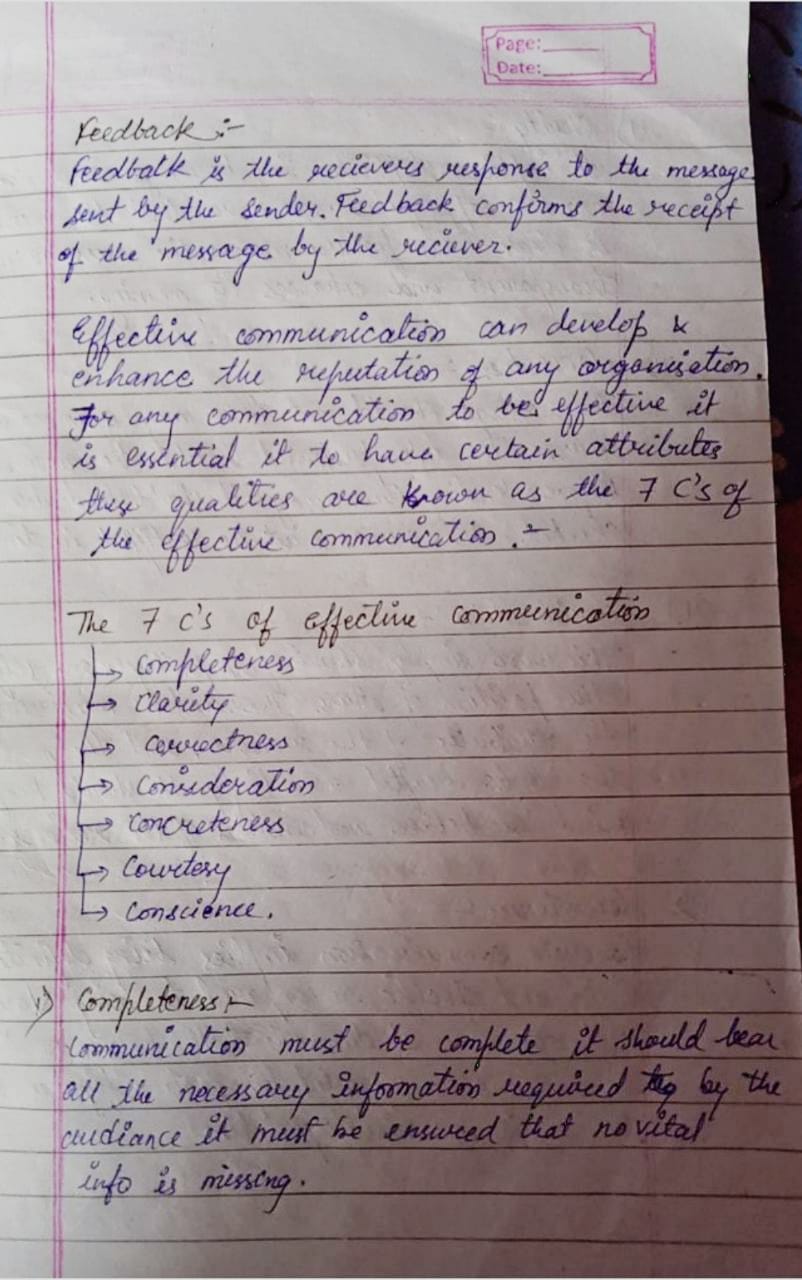 Page:
Date:
Feedback :-
Feedbatk is the recievers response to the message
sent by the sender. Feedback confirms the receipt
of the message by the reciever.
Effective communication can develop &
enhance the reputation of any organisation.
For any communication to be effective it
is essential it to have certain attributes
these qualities are known as the 7 C's of
the effective communication. -
The 7 C's of effective communication
→ Completeness
→ Clarity
→ Correctness
→ Consideration
→ Concreteness
→ Courtesy
→ Conscience.
1) Completeness :-
Communication must be complete it should bear
all the necessary information required by the
audiance it must be ensured that no vital
info is missing.